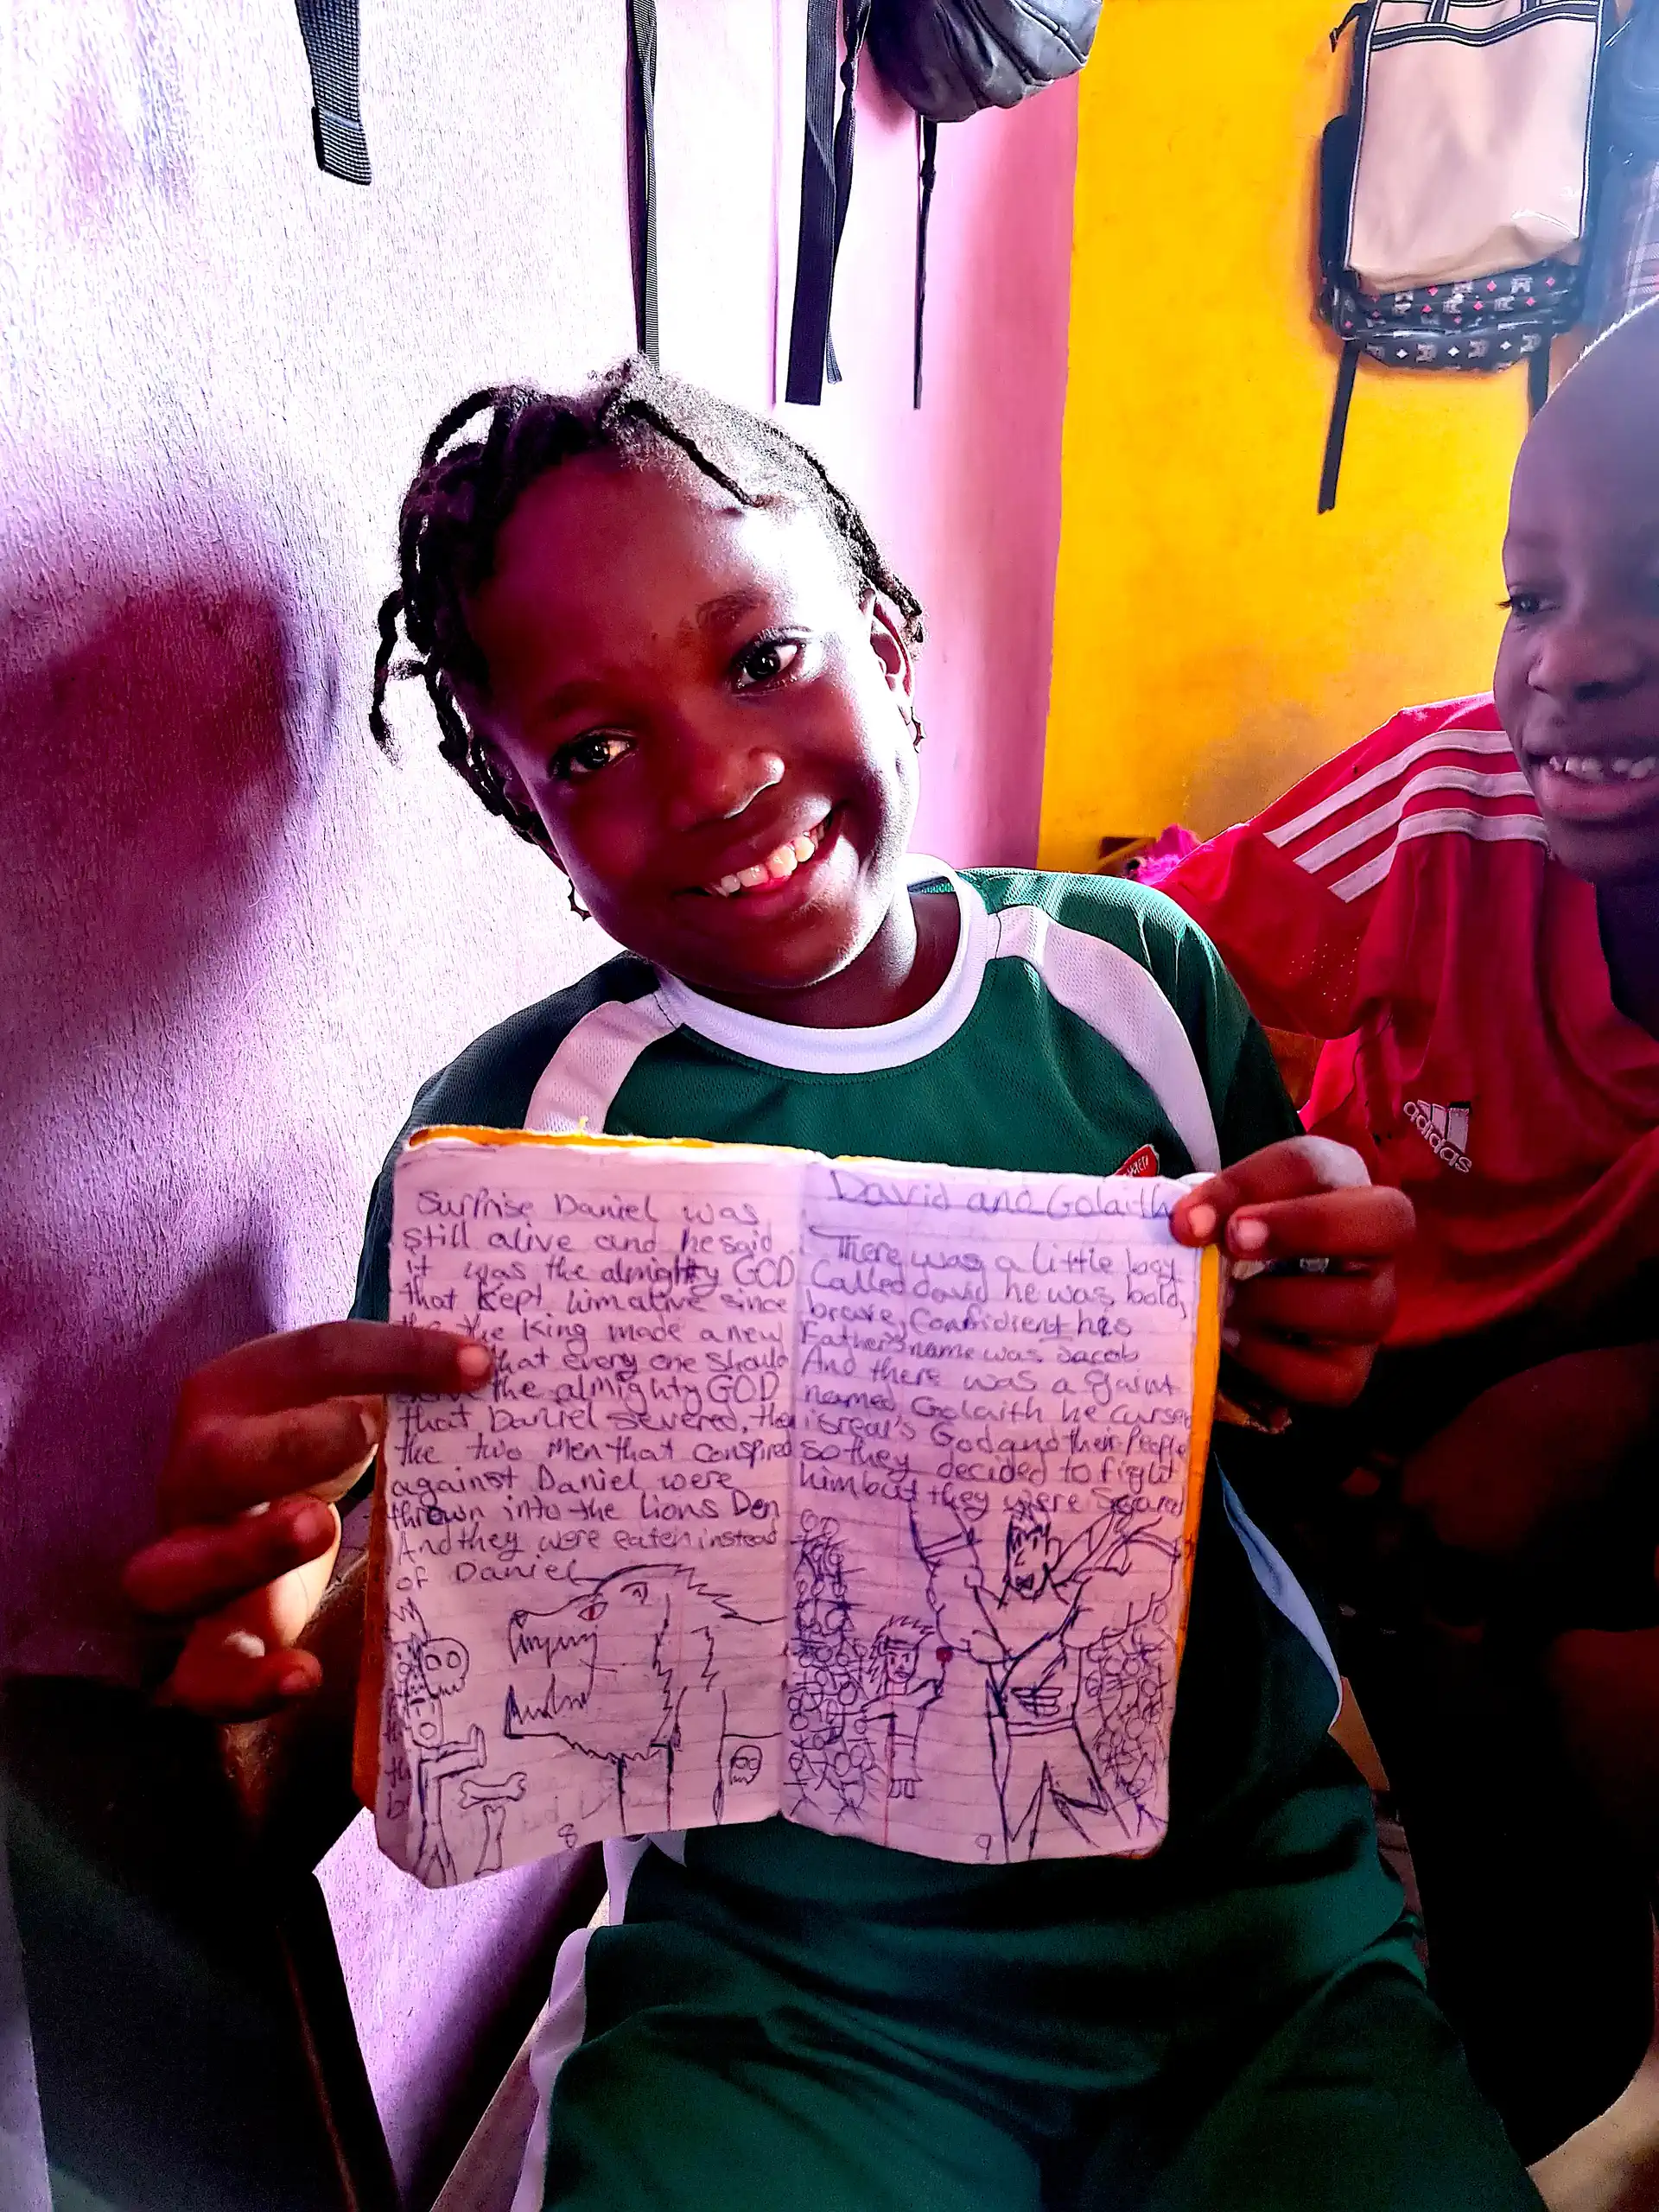 Surprise Daniel was
still alive and he said
it was the almighty GOD
that kept him alive since
the King made a new
that every one should
the almighty GOD
that Daniel severed, the
the two Men that conspired
against Daniel were
thrown into the Lions Den
And they were eaten instead
of Daniel
8
David and Golaith
There was a little boy
Called david he was bold,
brave, Confidient his
Father's name was Jacob
And there was a gaint
named Golaith he curses
isreal's God and their People
so they decided to fight
him but they were Scared
9
adidas